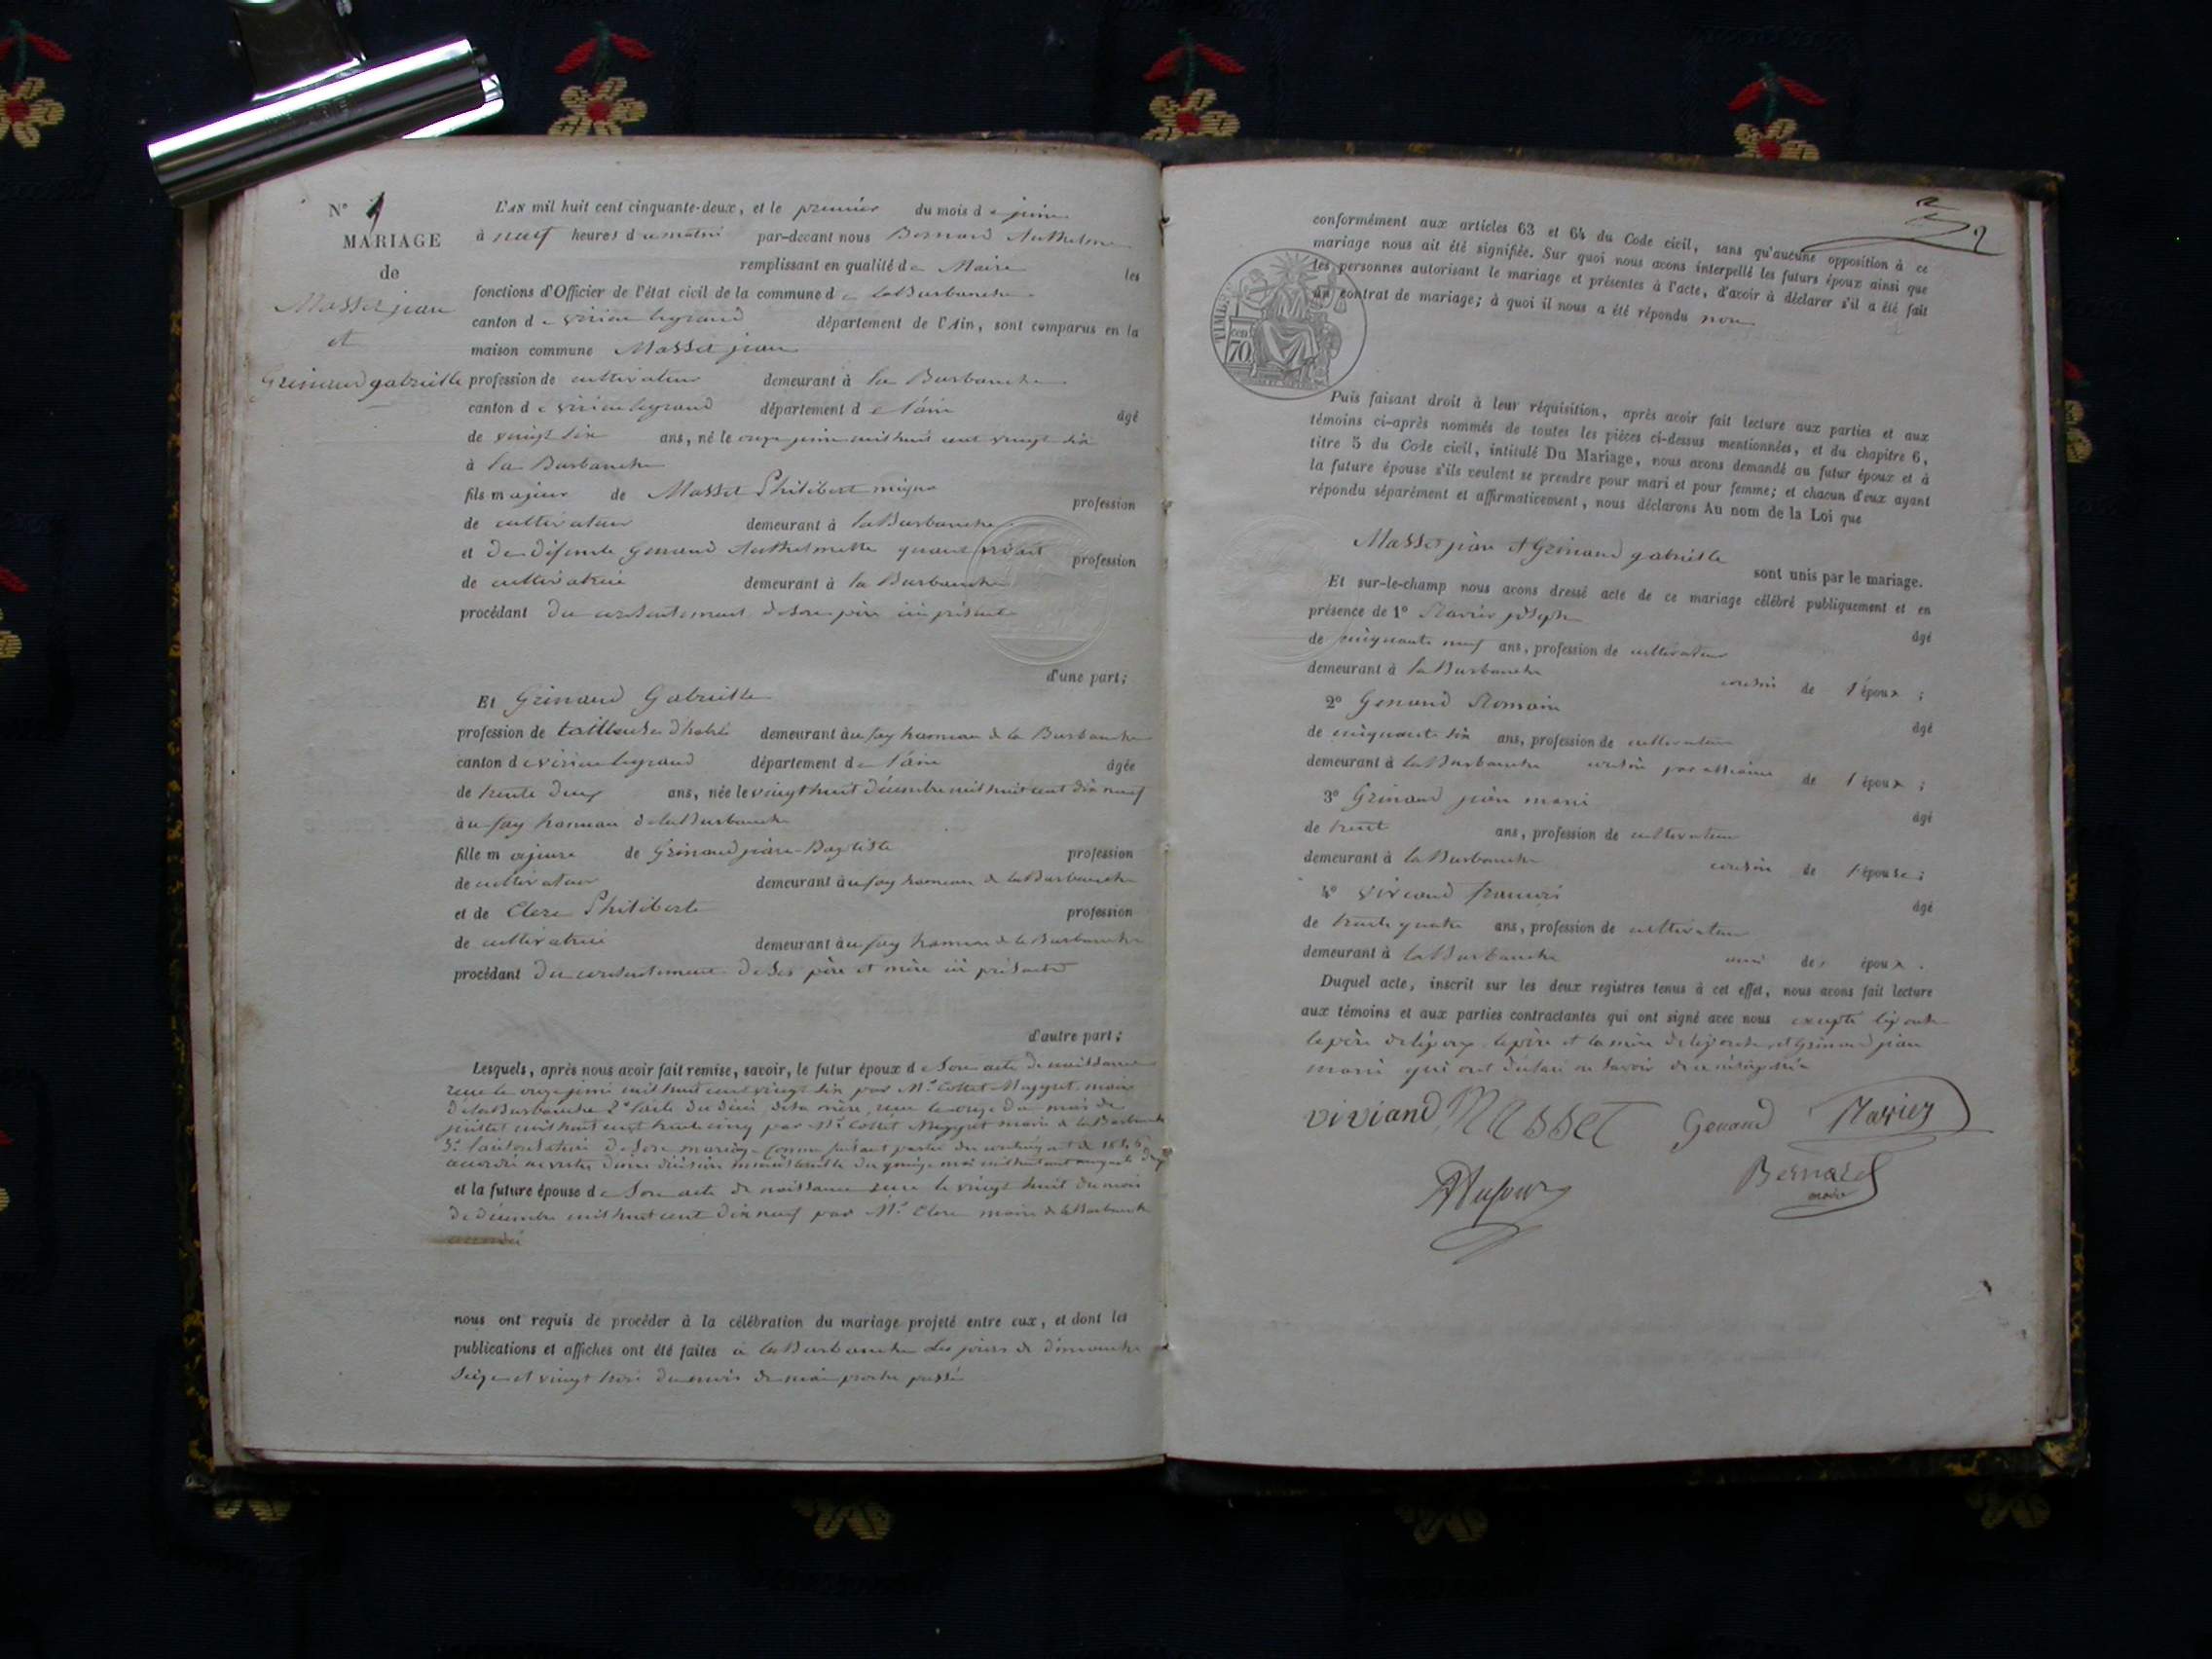 N° 1
MARIAGE
de
Masset jean
et
Grinand gabrielle
L'AN mil huit cent cinquante-deux, et le premier du mois de juin
à neuf heures du matin par-devant nous Bernard Anthelme
remplissant en qualité de Maire les
fonctions d'Officier de l'état civil de la commune de la Burbanche
canton de virieu legrand département de l'Ain, sont comparus en la
maison commune Masset jean
profession de cultivateur demeurant à la Burbanche
canton de virieu legrand département de l'ain âgé
de vingt six ans, né le onze juin mil huit cent vingt six
à la Burbanche
fils majeur de Masset Philibert profession
de cultivateur demeurant à la Burbanche
et de défunte genand Anthelmette quand vivait profession
de cultivatrice demeurant à la Burbanche
procédant du consentement de son père ici présent
d'une part;
Et Grinand Gabrielle
profession de tailleuse d'habit demeurant au fay hameau de la Burbanche
canton de virieu legrand département de l'ain âgée
de trente deux ans, née le vingt huit décembre mil huit cent dix neuf
au fay hameau de la Burbanche
fille majeure de Grinand jean-Baptiste profession
de cultivateur demeurant au fay hameau de la Burbanche
et de Clerc Philiberte profession
de cultivatrice demeurant au fay hameau de la Burbanche
procédant du consentement de ses père et mère ici présents
d'autre part;
Lesquels, après nous avoir fait remise, savoir, le futur époux de son acte de naissance
reçu le onze juin mil huit cent vingt six par Mr Collet maire
de la Burbanche 2° l'acte de décès de sa mère, reçu le onze du mois de
juillet mil huit cent trente cinq par Mr Collet maire de la Burbanche
3° l'autorisation de son mariage comme faisant partie du contingent de 1846
accordée en vertu d'une décision ministérielle du quinze mai mil huit cent cinquante deux
et la future épouse de son acte de naissance reçu le vingt huit du mois
de décembre mil huit cent dix neuf par Mr Clerc maire de la Burbanche
nous ont requis de procéder à la célébration du mariage projeté entre eux, et dont les
publications et affiches ont été faites à la Burbanche les jours de dimanche
seize et vingt trois du mois de mai proche passé
conformément aux articles 63 et 64 du Code civil, sans qu'aucune opposition à ce
mariage nous ait été signifiée. Sur quoi nous avons interpellé les futurs époux ainsi que
les personnes autorisant le mariage et présentes à l'acte, d'avoir à déclarer s'il a été fait
un contrat de mariage; à quoi il nous a été répondu non
TIMBRE
70
Puis faisant droit à leur réquisition, après avoir fait lecture aux parties et aux
témoins ci-après nommés de toutes les pièces ci-dessus mentionnées, et du chapitre 6,
titre 5 du Code civil, intitulé Du Mariage, nous avons demandé au futur époux et à
la future épouse s'ils veulent se prendre pour mari et pour femme; et chacun d'eux ayant
répondu séparément et affirmativement, nous déclarons Au nom de la Loi que
Masset jean et Grinand gabrielle
sont unis par le mariage.
Et sur-le-champ nous avons dressé acte de ce mariage célébré publiquement et en
présence de 1° Ravier joseph âgé
de cinquante neuf ans, profession de cultivateur
demeurant à la Burbanche cousin de l'époux;
2° Genand Romain âgé
de cinquante six ans, profession de cultivateur
demeurant à la Burbanche cousin par alliance de l'époux;
3° Grinand jean marie âgé
de trente ans, profession de cultivateur
demeurant à la Burbanche cousin de l'épouse;
4° Viviand françois âgé
de trente quatre ans, profession de cultivateur
demeurant à la Burbanche ami des époux.
Duquel acte, inscrit sur les deux registres tenus à cet effet, nous avons fait lecture
aux témoins et aux parties contractantes qui ont signé avec nous excepté l'épouse
le père de l'époux, le père et la mère de l'épouse et Grinand jean
marie qui ont déclaré ne savoir
viviand Masset Genand Ravier
Bernard
maire